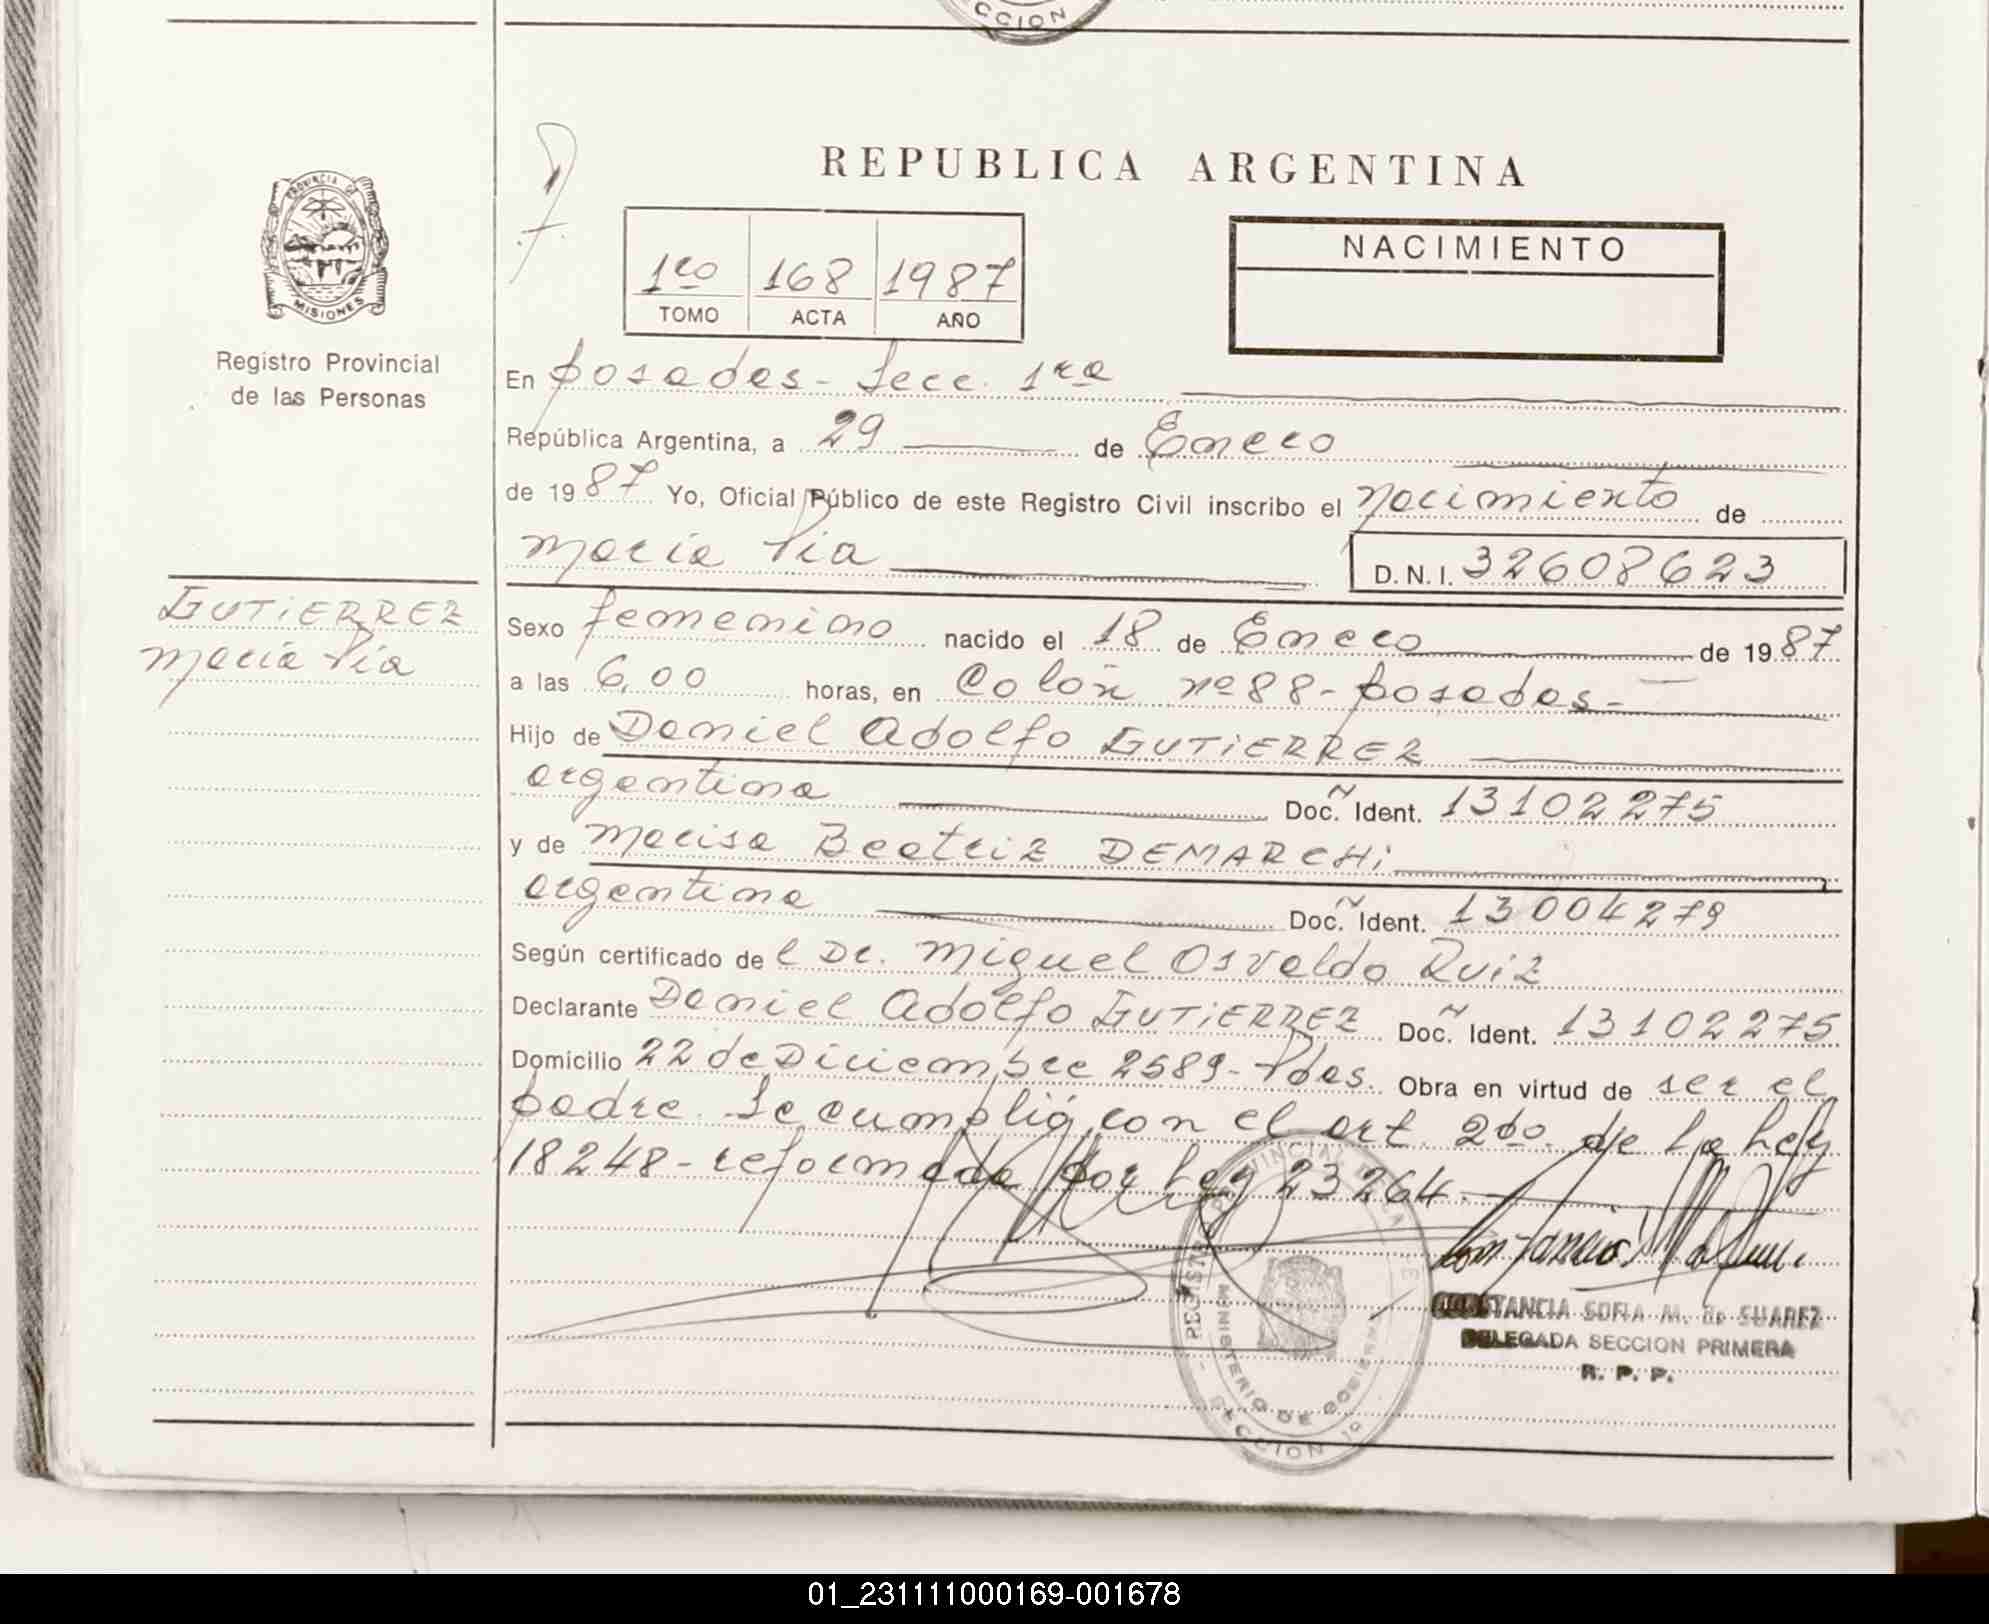 CCION
REPUBLICA ARGENTINA
PROVINCIA DE
MISIONES
Registro Provincial
de las Personas
1ro 168 1987
TOMO ACTA AÑO
NACIMIENTO
En Posadas - Secc. 1ra
República Argentina, a 29 de Enero
de 1987 Yo, Oficial Público de este Registro Civil inscribo el Nacimiento de
María Pía D.N.I. 32608623
GUTIERREZ
María Pía
Sexo femenino nacido el 18 de Enero de 1987
a las 6,00 horas, en Colón nº 88 - Posadas -
Hijo de Daniel Adolfo GUTIERREZ
argentina Doc. Ident. 13102275
y de Marisa Beatriz DEMARCHI
argentina Doc. Ident. 13004279
Según certificado de l Dr. Miguel Osvaldo Ruiz
Declarante Daniel Adolfo GUTIERREZ Doc. Ident. 13102275
Domicilio 22 de Diciembre 2589 - Pdas. Obra en virtud de ser el
padre. Se cumplió con el art. 2do. de la Ley
18248 - reformada por Ley 23264. -
REGISTRO PROVINCIAL DE LAS
MINISTERIO DE GOBIERNO
SECCION 1º
CONSTANCIA SOFIA M. de SUAREZ
DELEGADA SECCION PRIMERA
R. P. P.
01_231111000169-001678